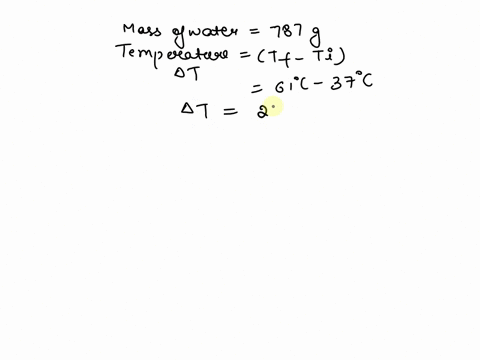 Mass of water = 787 g
Temperature = (Tf - Ti)
ΔT
= 61°C - 37°C
ΔT = 2